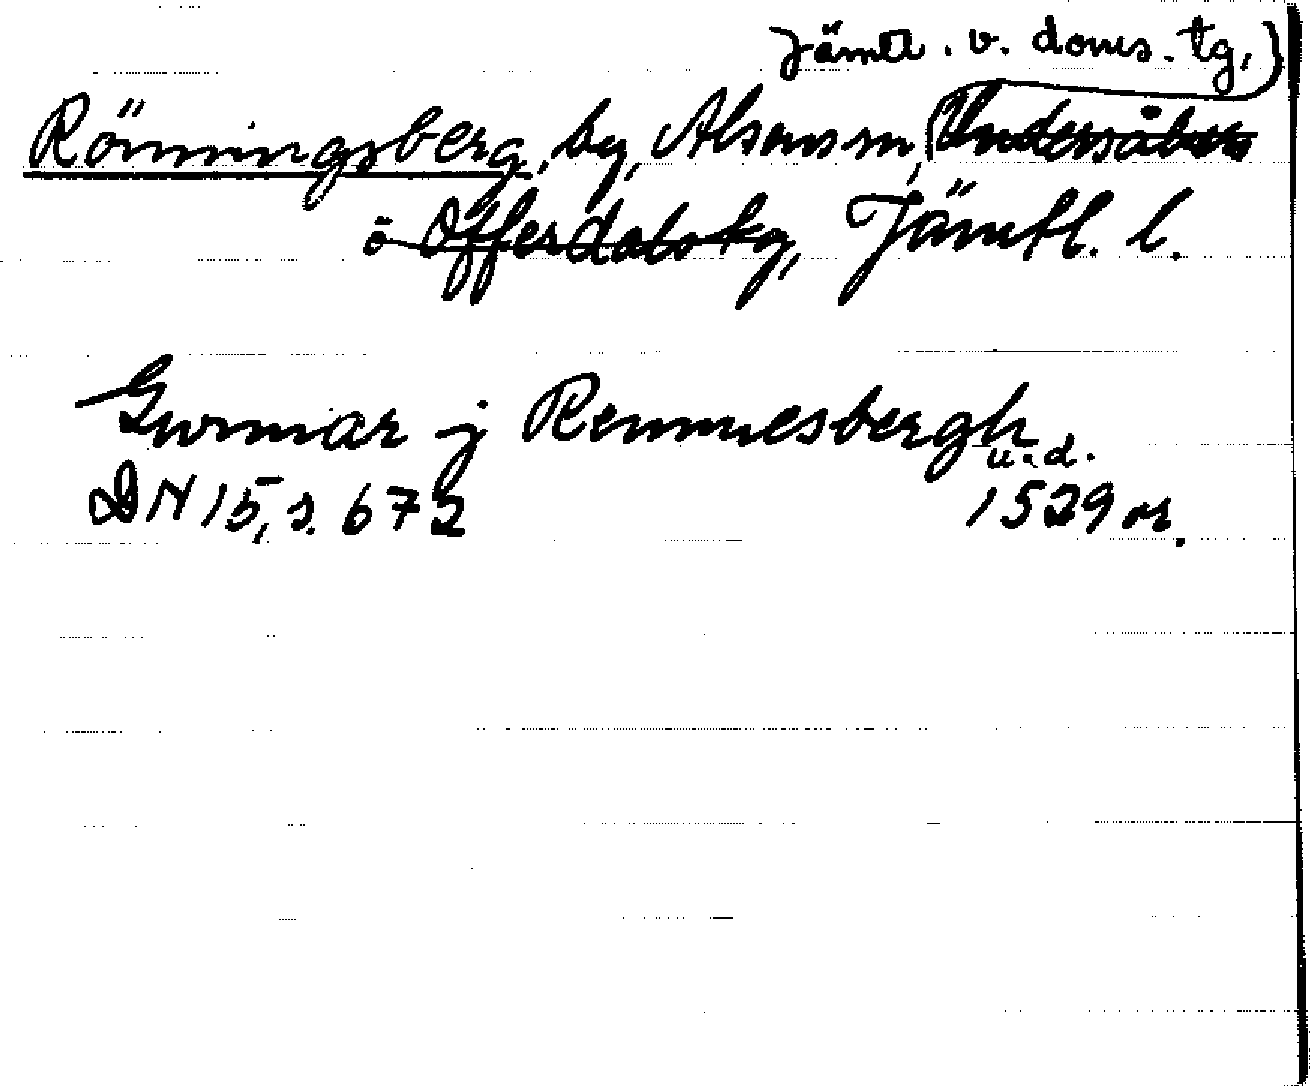 Jämtl. v. doms. tg,
Rönningsberg, by, Alsens sn, Undersåkers
o Offerdals tg, Jämtl. l.
Gunnar j Rennnesbergh
u.d.
DN 15, s. 672 1529 or.